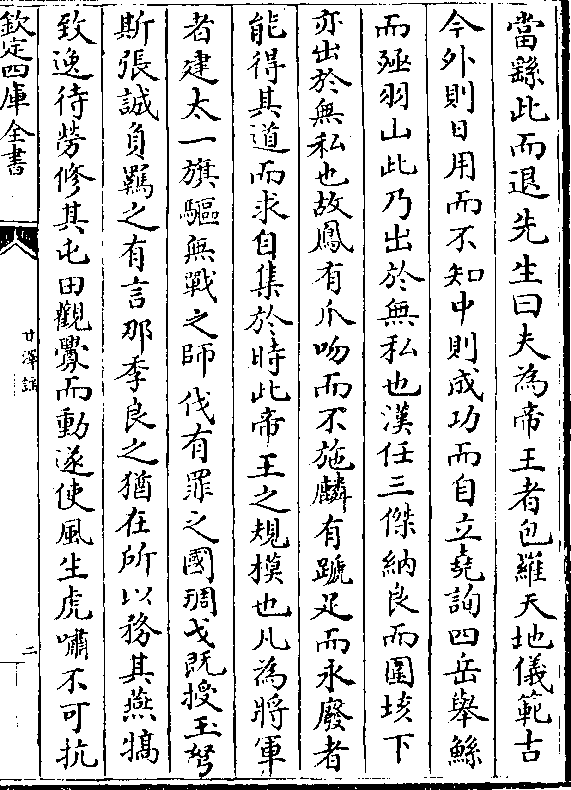 當繇此而退先生曰夫為帝王者包羅天地儀範古
今外則日用而不知中則成功而自立堯詢四岳舉鯀
而殛羽山此乃出於無私也漢任三傑納良而圍垓下
亦出於無私也故鳳有爪吻而不施麟有蹏足而永廢者
能得其道而求自集於時此帝王之規模也凡為將軍
者建太一旗驅無戰之師伐有罪之國琱戈既授玉弩
斯張誠負羈之有言那季良之猶在所以務其燕犒
致逸待勞修其屯田觀釁而動遂使風生虎嘯不可抗
欽定四庫全書
甘澤謠
二